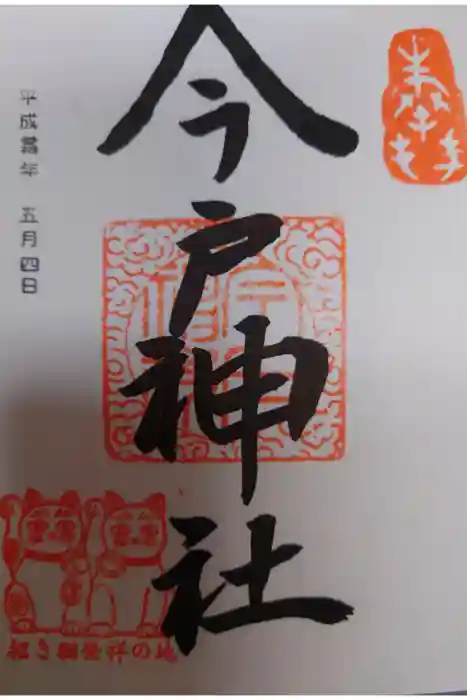 奉拝
今戸神社
平成 年 五月四日
招き猫発祥の地